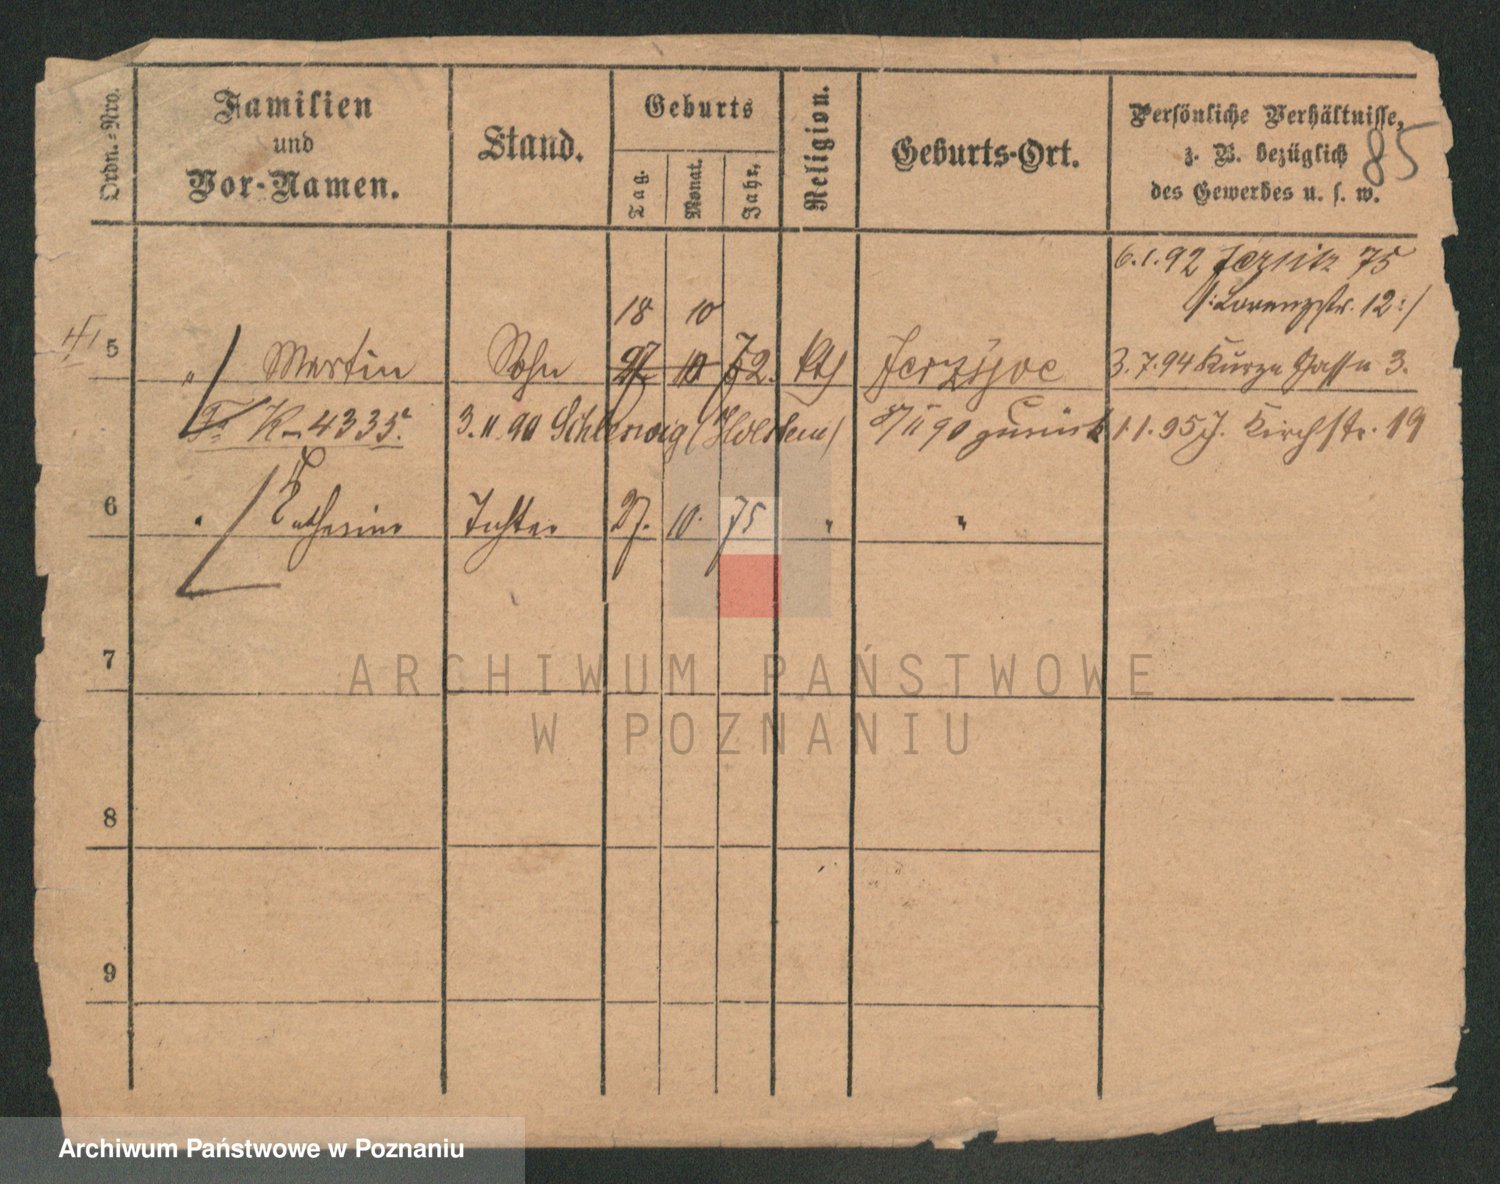 Ordn.-Nro.
Familien
und
Vor-Namen.
Stand.
Geburts
Tag.
Monat.
Jahr.
Religion.
Geburts-Ort.
Persönliche Verhältnisse,
z. B. bezüglich
des Gewerbes u. s. w.
85
6.1.92 Jersitz 75
/:Lorenzstr. 12:/
18 10
5 " Martin Sohn 27. 10 72. kth Jerzyce 3.7.94 Kurze Gasse 3.
K 4335. 3.11.90 Schleswig (Holstein) 8/11 90 zurück 1.1.95 J. Kirchstr. 19
6 " Katharina Tochter 27. 10. 75 " "
7
8
9
ARCHIWUM PAŃSTWOWE
W POZNANIU
Archiwum Państwowe w Poznaniu